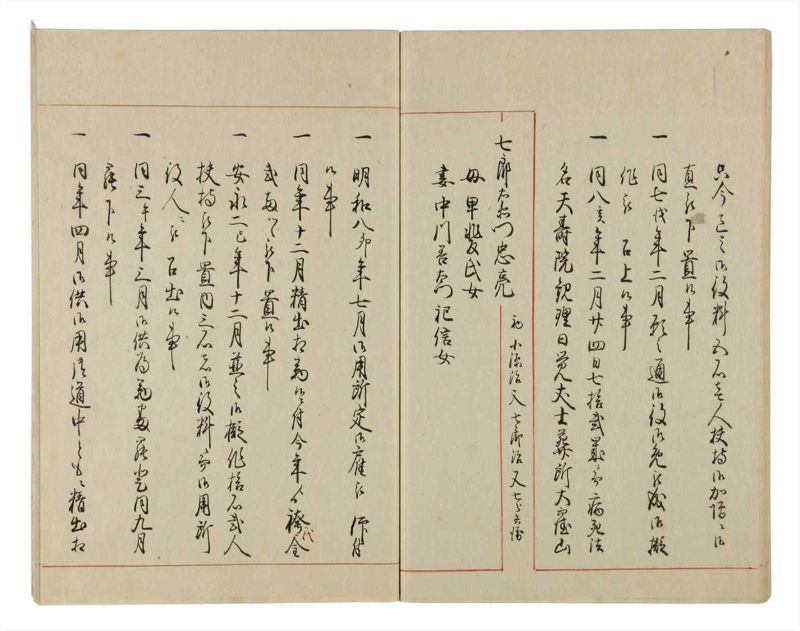 只今迄之御役料五石壱人扶持御加増ニ而
直被下置候事
一 同七戌年二月願之通御役御免被成御擬
作被 召上候事
一 同八亥年二月廿四日七拾弐歳ニ而病死法
名天壽院観理日覚大士葬所大窪山
七郎左衛門忠亮 初小源治又七郎治又七
母里髪氏女
妻中川吾左衛門記信女
一 明和八卯年七月御用所定御雇被 仰付
候事
一 同年十二月精出相勤候ニ付今年より襟代金
弐両ツヽ被下置候事
一 安永二巳年十二月並之御擬作拾石弐人
扶持被下置内三石者御役料ニ而御用所
役人ニ被 召出候事
一 同三午年三月御供為勤番登同九月
罷下候事
一 同年四月御供御用済道中とも精出相